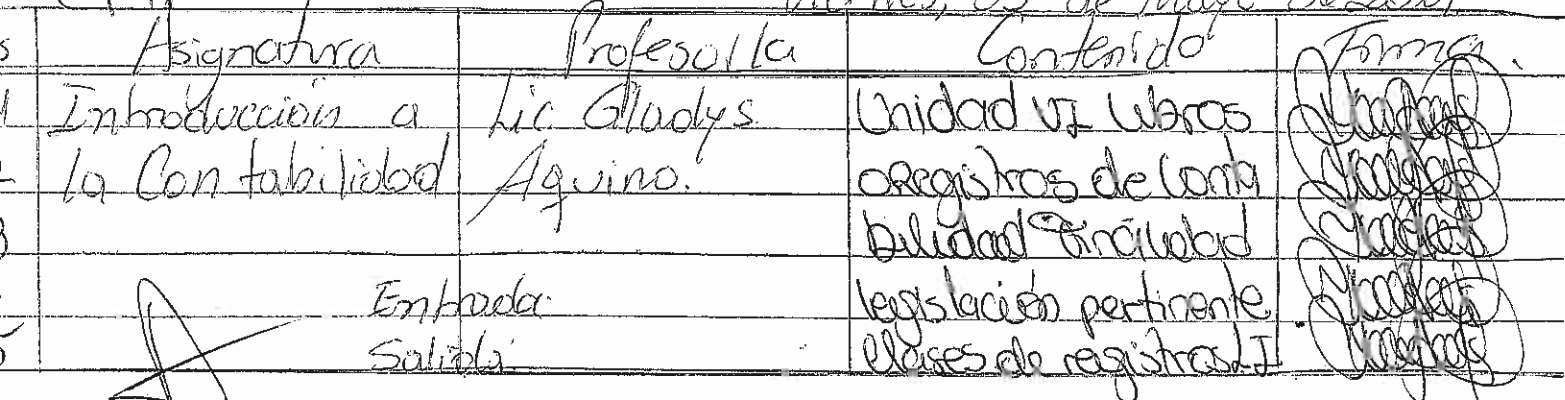 de Mayo
Asignatura Profesor/a Contenido Firma.
1 Introducción a Lic Gladys Unidad VI Libros
la Contabilidad Aquino. o Registros de Conta
3 bilidad Finalidad
Entrada legislación pertinente
5 Salida clases de registros